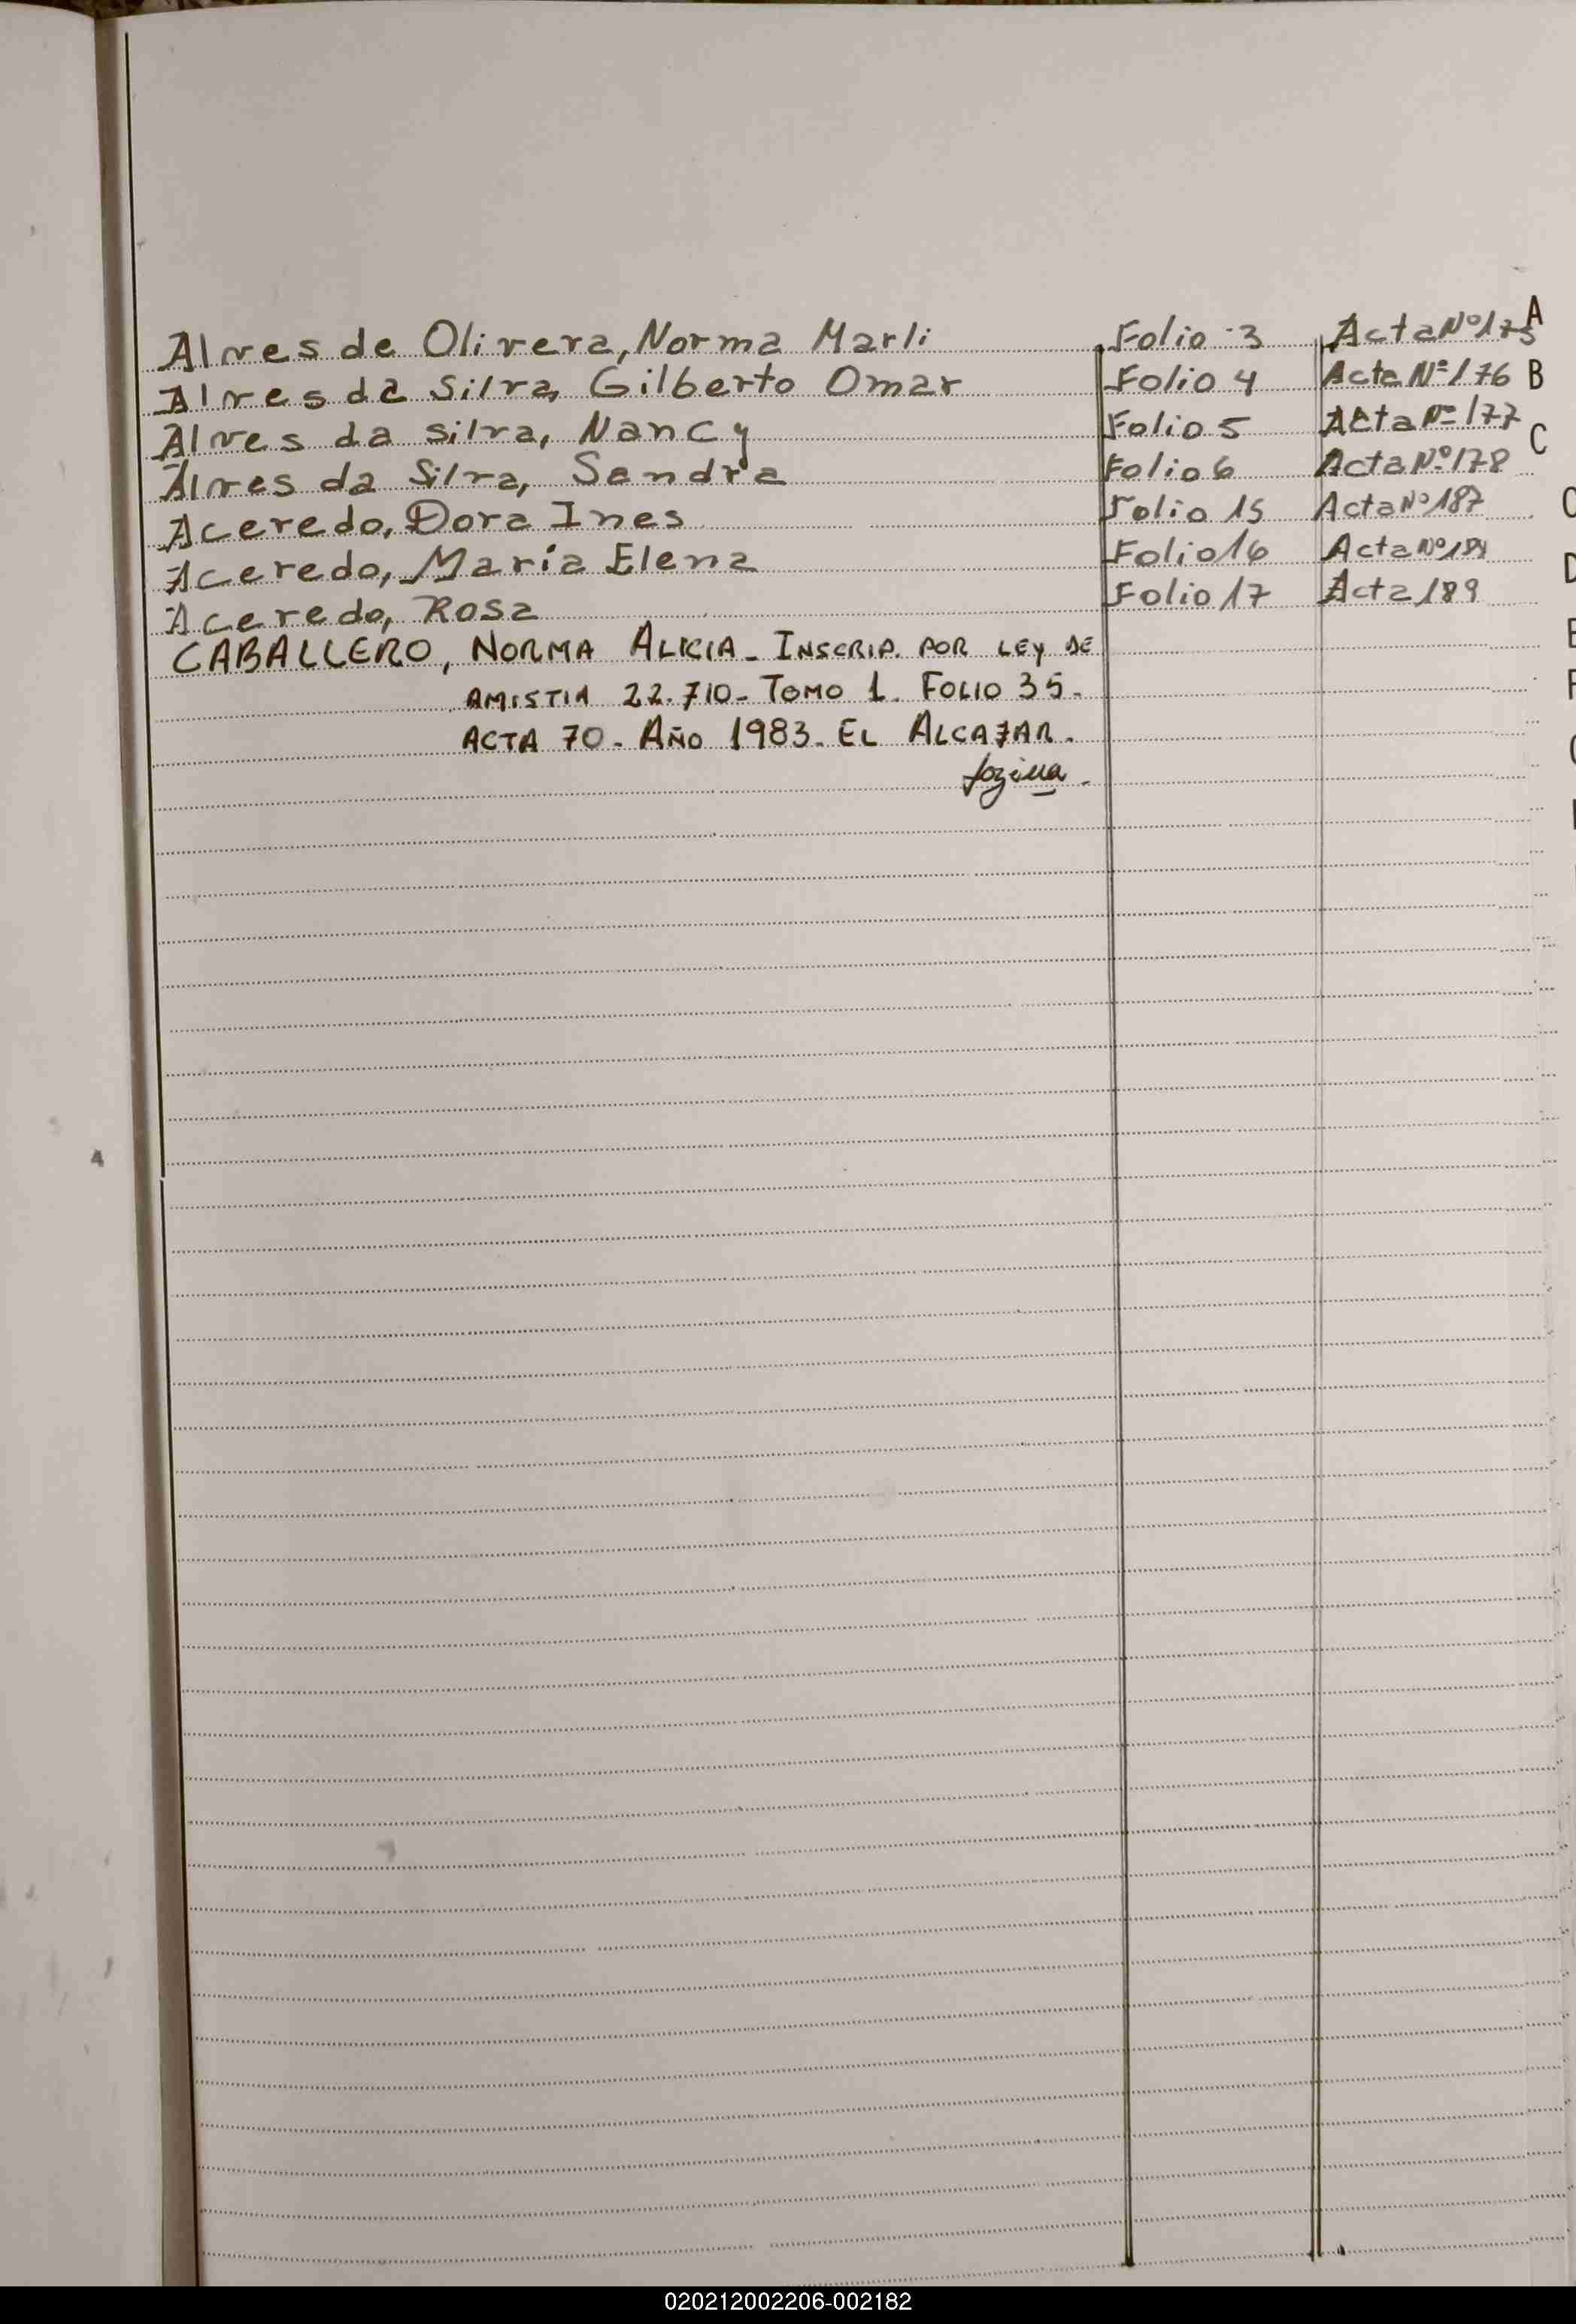 Alves de Olivera, Norma Marli Folio 3 Acta Nº 175 A
Alves da Silva, Gilberto Omar Folio 4 Acta Nº 176 B
Alves da silva, Nancy Folio 5 Acta Nº 177 C
Alves da Silva, Sandra Folio 6 Acta Nº 178
Acevedo, Dora Ines Folio 15 Acta Nº 187
Acevedo, María Elena Folio 16 Acta Nº
Acevedo, Rosa Folio 17 Acta 189
CABALLERO, NORMA ALICIA - INSCRIP. POR LEY DE
AMISTIA 22.710 - TOMO 1. FOLIO 35.
ACTA 70 - AÑO 1983 - EL ALCAZAR.
4
020212002206-002182